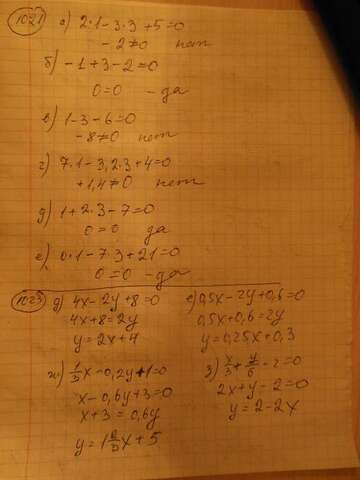 1021 а) 2·1-3·3+5=0
-2≠0 нет
б) -1+3-2=0
0=0 - да
в) 1-3-6=0
-8≠0 нет
г) 7·1-3,2·3+4=0
+1,4≠0 нет
д) 1+2·3-7=0
0=0 да
е) 0·1-7·3+21=0
0=0 - да
1023 д) 4x-2y+8=0
4x+8=2y
y=2x+4
е) 0,5x-2y+0,6=0
0,5x+0,6=2y
y=0,25x+0,3
x-0,6y+3=0
x+3=0,6y
y=1 2/3x+5
з) x/3+y/6-2=0
2x+y-2=0
y=2-2x